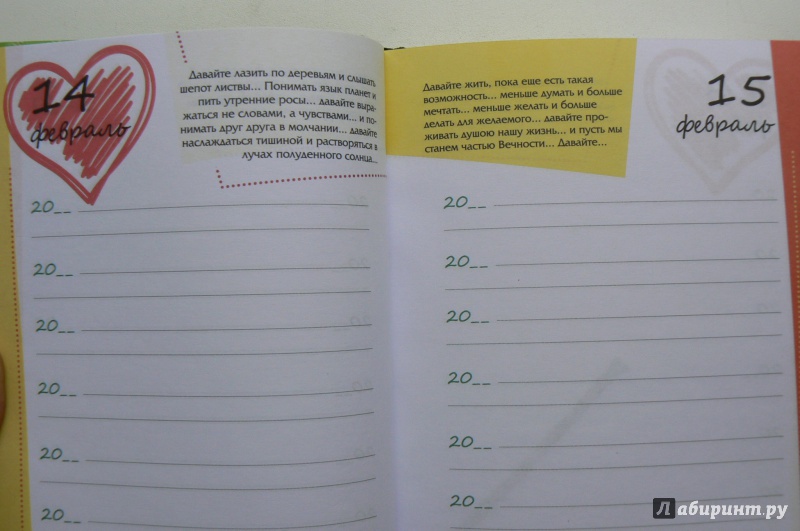 14
февраль
Давайте лазить по деревьям и слышать
шепот листвы... Понимать язык планет и
пить утренние росы... давайте выра-
жаться не словами, а чувствами... и по-
нимать друг друга в молчании... давайте
наслаждаться тишиной и растворяться в
лучах полуденного солнца...
20__
20__
20__
20__
20__
20__
Давайте жить, пока еще есть такая
возможность... меньше думать и больше
мечтать... меньше желать и больше
делать для желаемого... давайте про-
живать душою нашу жизнь... и пусть мы
станем частью Вечности... Давайте...
15
февраль
20__
20__
20__
20__
20__
20__
Лабиринт.ру